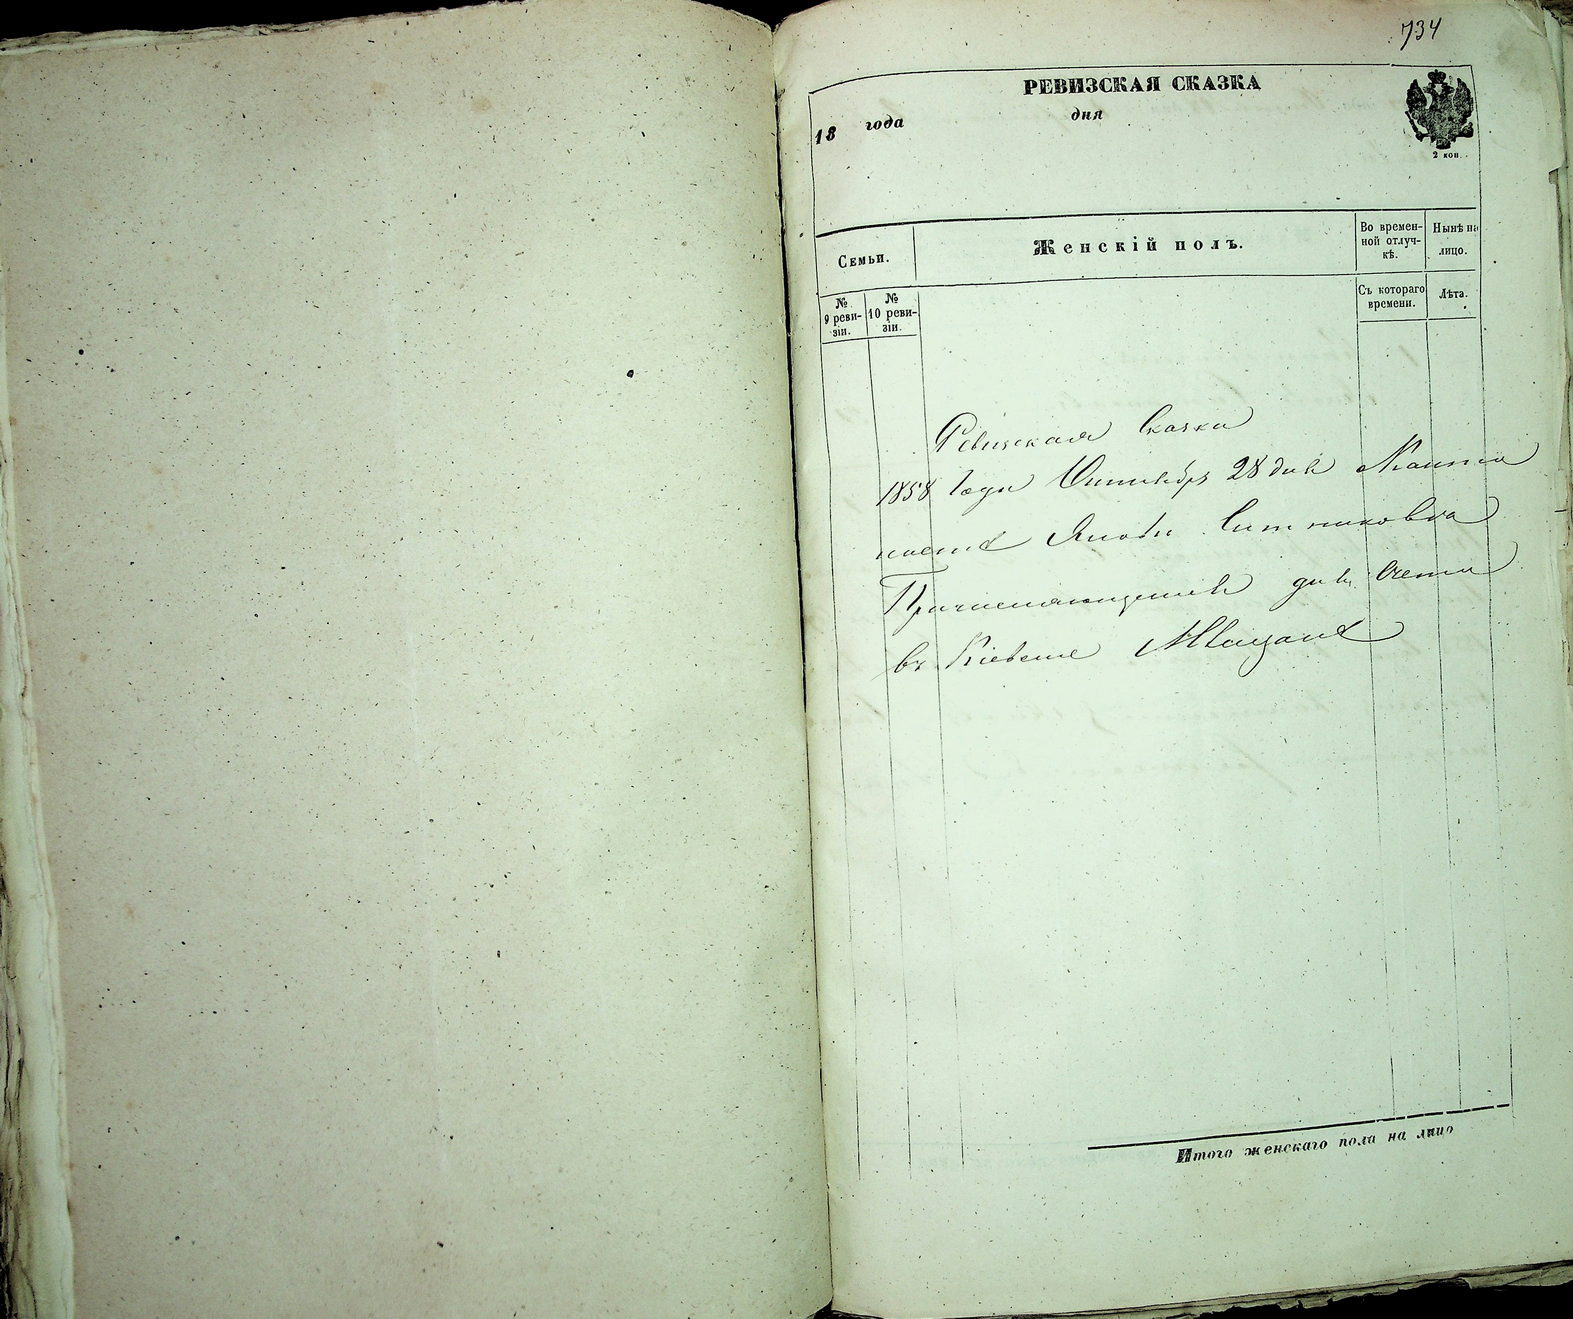 734
РЕВИЗСКАЯ СКАЗКА
18 года дня
2 коп.
Семьи.
Женскій полъ.
Во времен-
ной отлуч-
кѣ.
Нынѣ на
лицо.
№
9 реви-
зіи.
№
10 реви-
зіи.
Съ котораго
времени.
Лѣта.
Ревизская Сказка
1858 Года Октября 28 дня
Ситниковка
Причисляющиеся для Счета
въ Кіевские Мещане
Итого женскаго пола на лицо